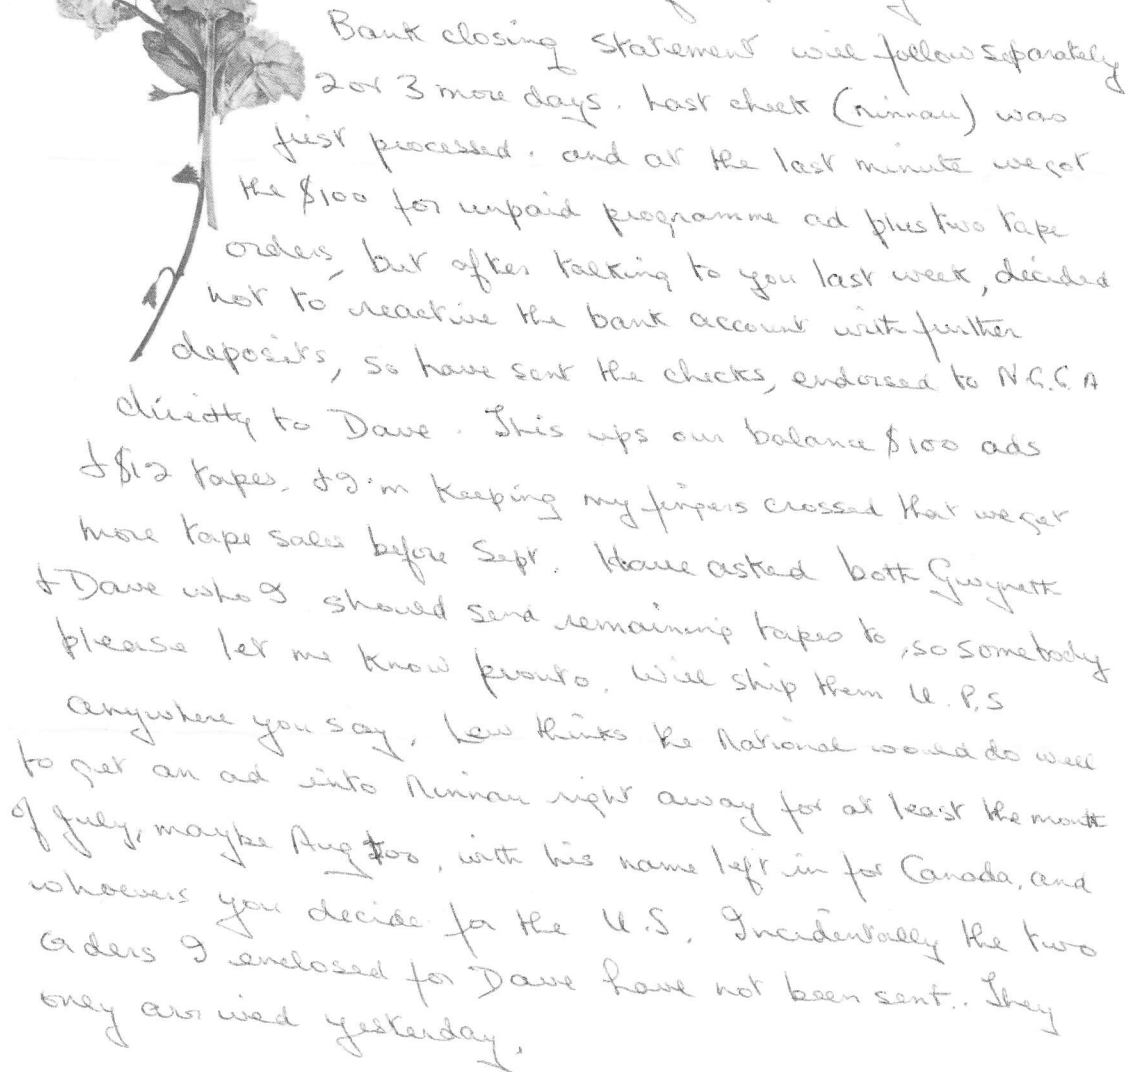 Bank closing statement will follow separately
2 or 3 more days. Last check (ninnau) was
just processed. and at the last minute we got
the $100 for unpaid programme ad plus two tape
orders, but after talking to you last week, decided
not to reactive the bank account with further
deposits, so have sent the checks, endorsed to N.G.G.A
directly to Dave. This ups our balance $100 ads
+ $12 tapes. + I'm keeping my fingers crossed that we get
more tape sales before Sept. Have asked both Gwyneth
+ Dave who I should send remaining tapes to, so somebody
please let me know pronto. Will ship them U.P.S
anywhere you say. Lew thinks the National would do well
to get an ad into Ninnau right away for at least the month
of July, maybe Aug too, with his name left in for Canada, and
whoevers you decide for the U.S. Incidentally the two
orders I enclosed for Dave have not been sent. They
only arrived yesterday.